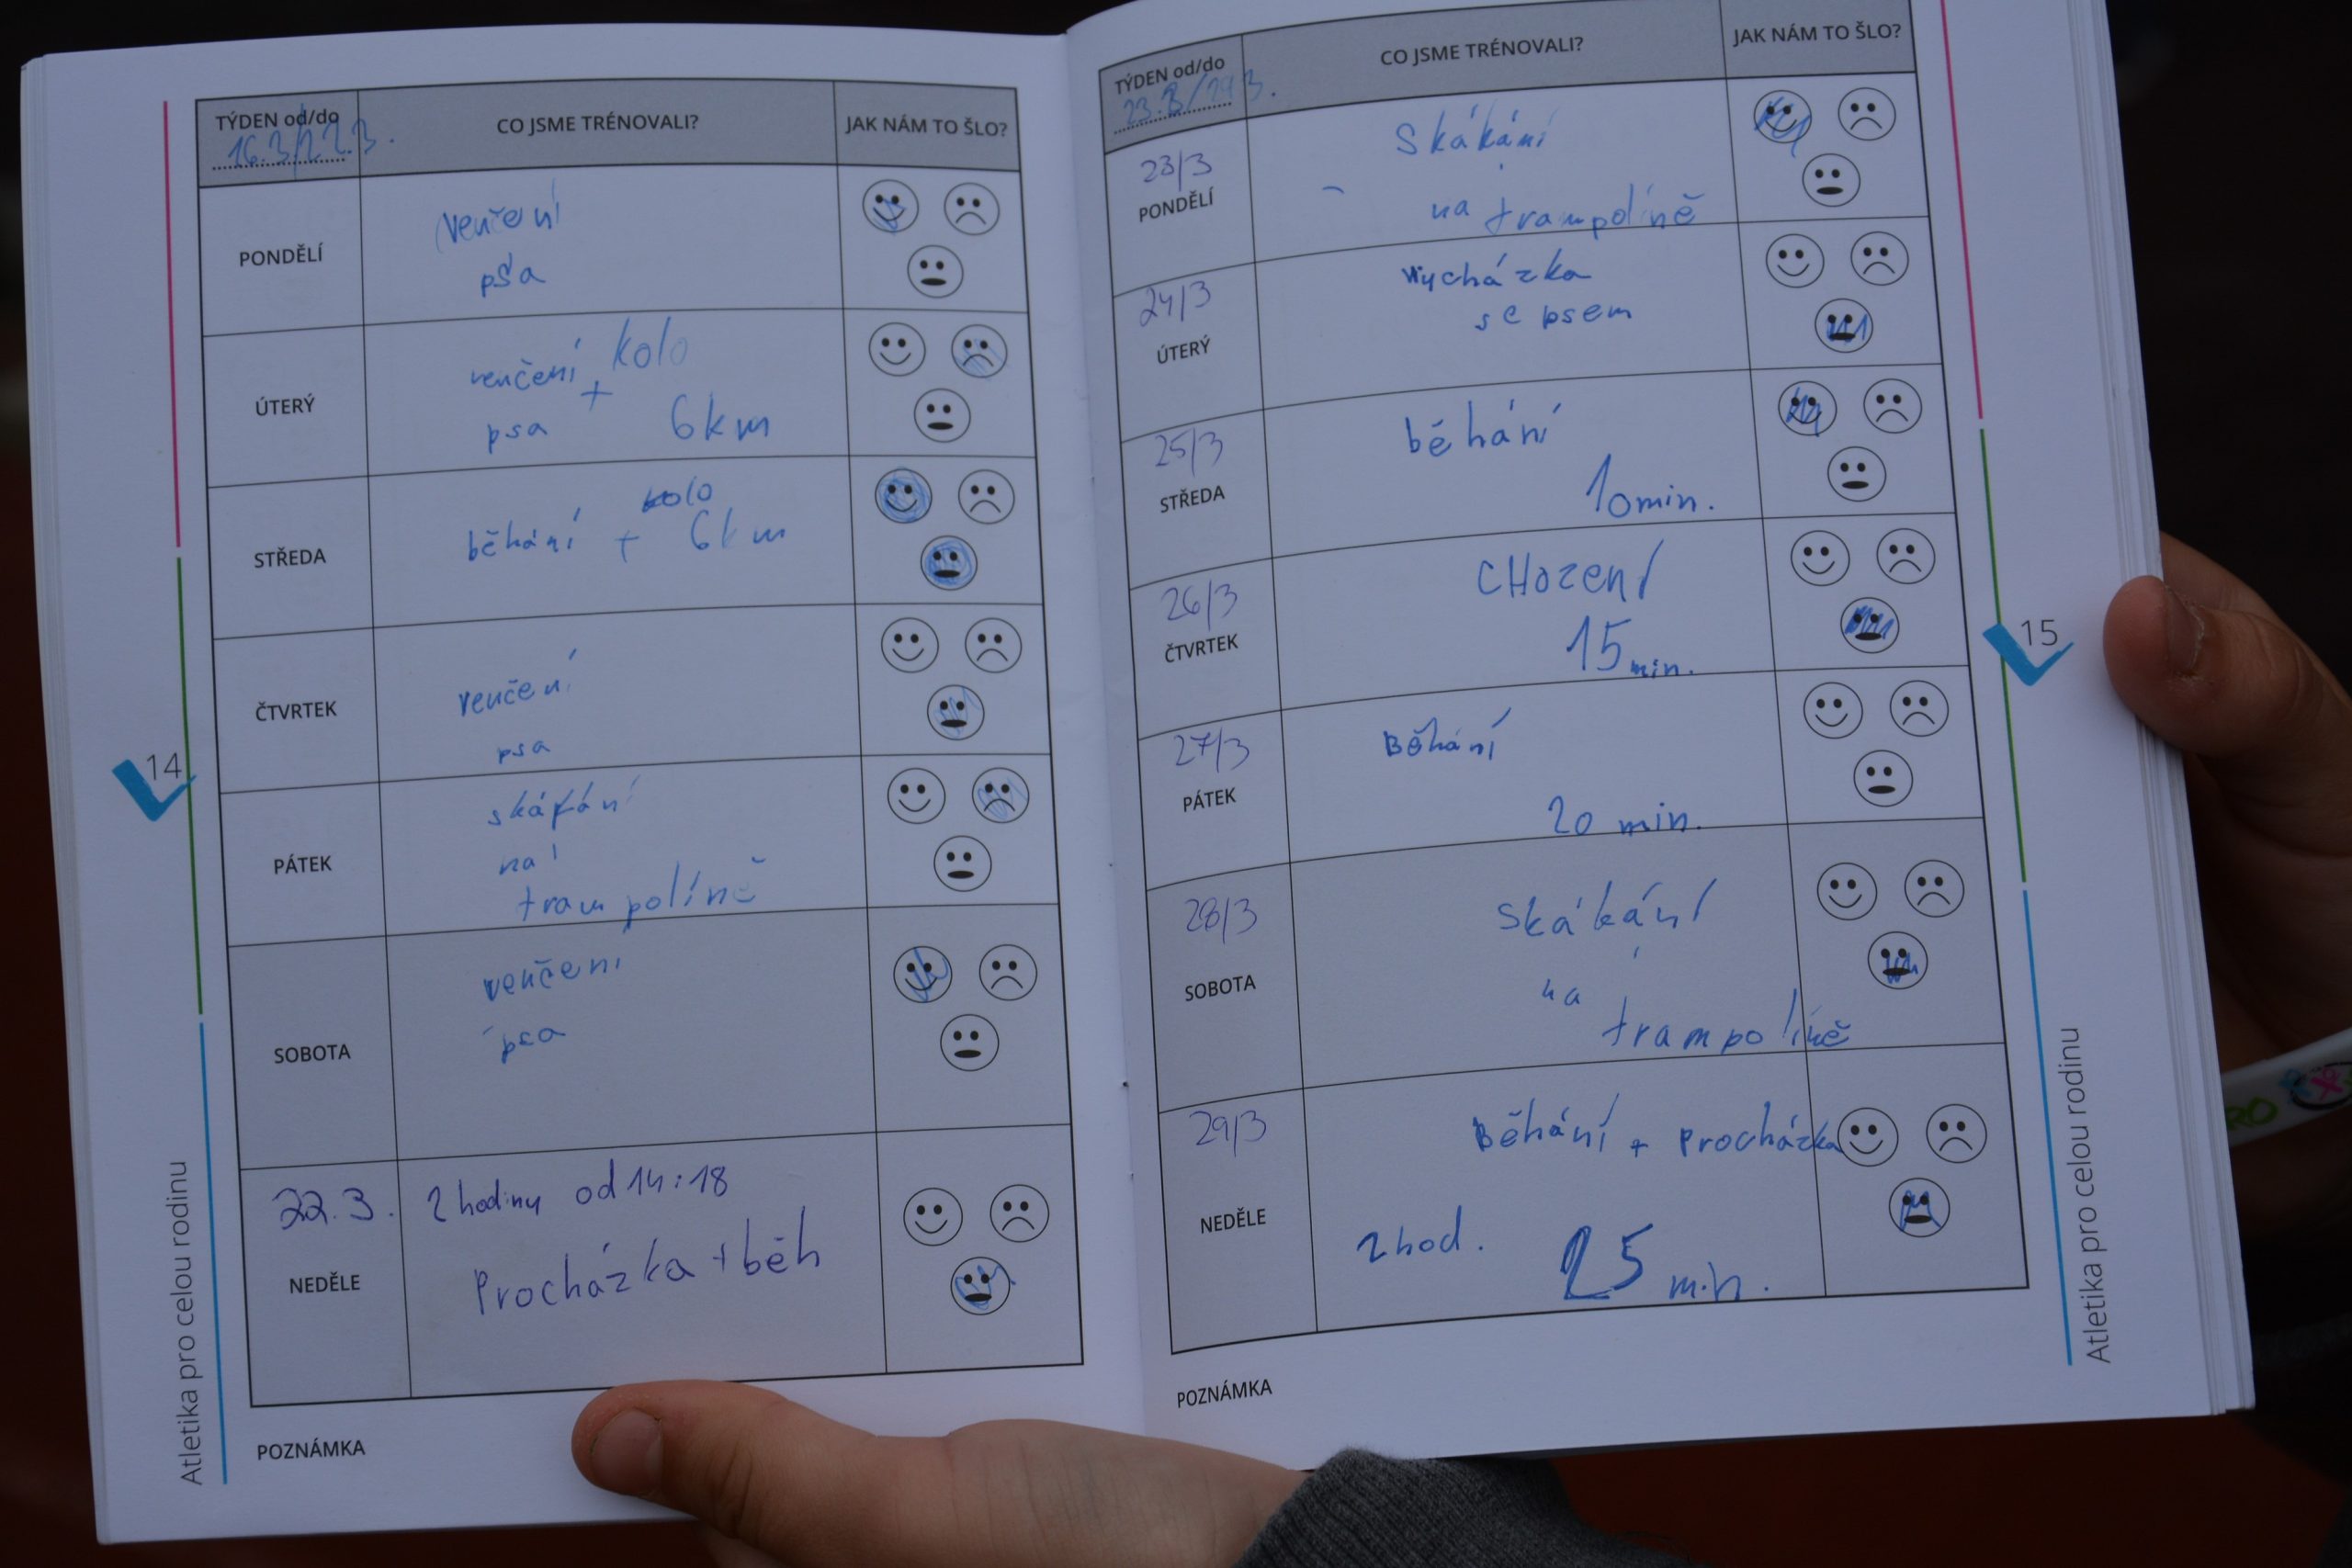 TÝDEN od/do
16.3/22.3.
CO JSME TRÉNOVALI?
JAK NÁM TO ŠLO?
PONDĚLÍ
Venčení
psa
ÚTERÝ
venčení + kolo
psa 6km
STŘEDA
kolo
běhání + 6km
ČTVRTEK
venčení
psa
PÁTEK
skákání
na
trampolíně
SOBOTA
venčení
psa
22.3.
NEDĚLE
2 hodiny od 14:18
Procházka + běh
POZNÁMKA
14
Atletika pro celou rodinu
TÝDEN od/do
23.3/29 3.
CO JSME TRÉNOVALI?
JAK NÁM TO ŠLO?
23/3
PONDĚLÍ
Skákání
na trampolíně
24/3
ÚTERÝ
Vycházka
se psem
25/3
STŘEDA
běhání
10min.
26/3
ČTVRTEK
CHození
15min.
27/3
PÁTEK
Běhání
20 min.
28/3
SOBOTA
Skákání
na
trampolíně
29/3
NEDĚLE
Běhání + Procházka
2hod. 25 min.
POZNÁMKA
15
Atletika pro celou rodinu